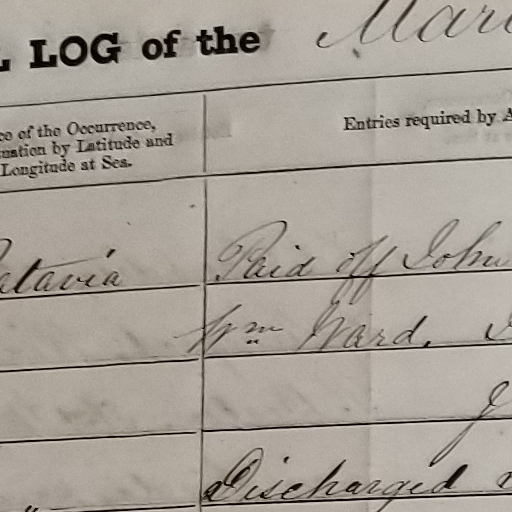 LOG of the Mar
ce of the Occurrence,
uation by Latitude and
Longitude at Sea.
Entries required by A
atavia Paid off John
Wm Ward.
Discharged